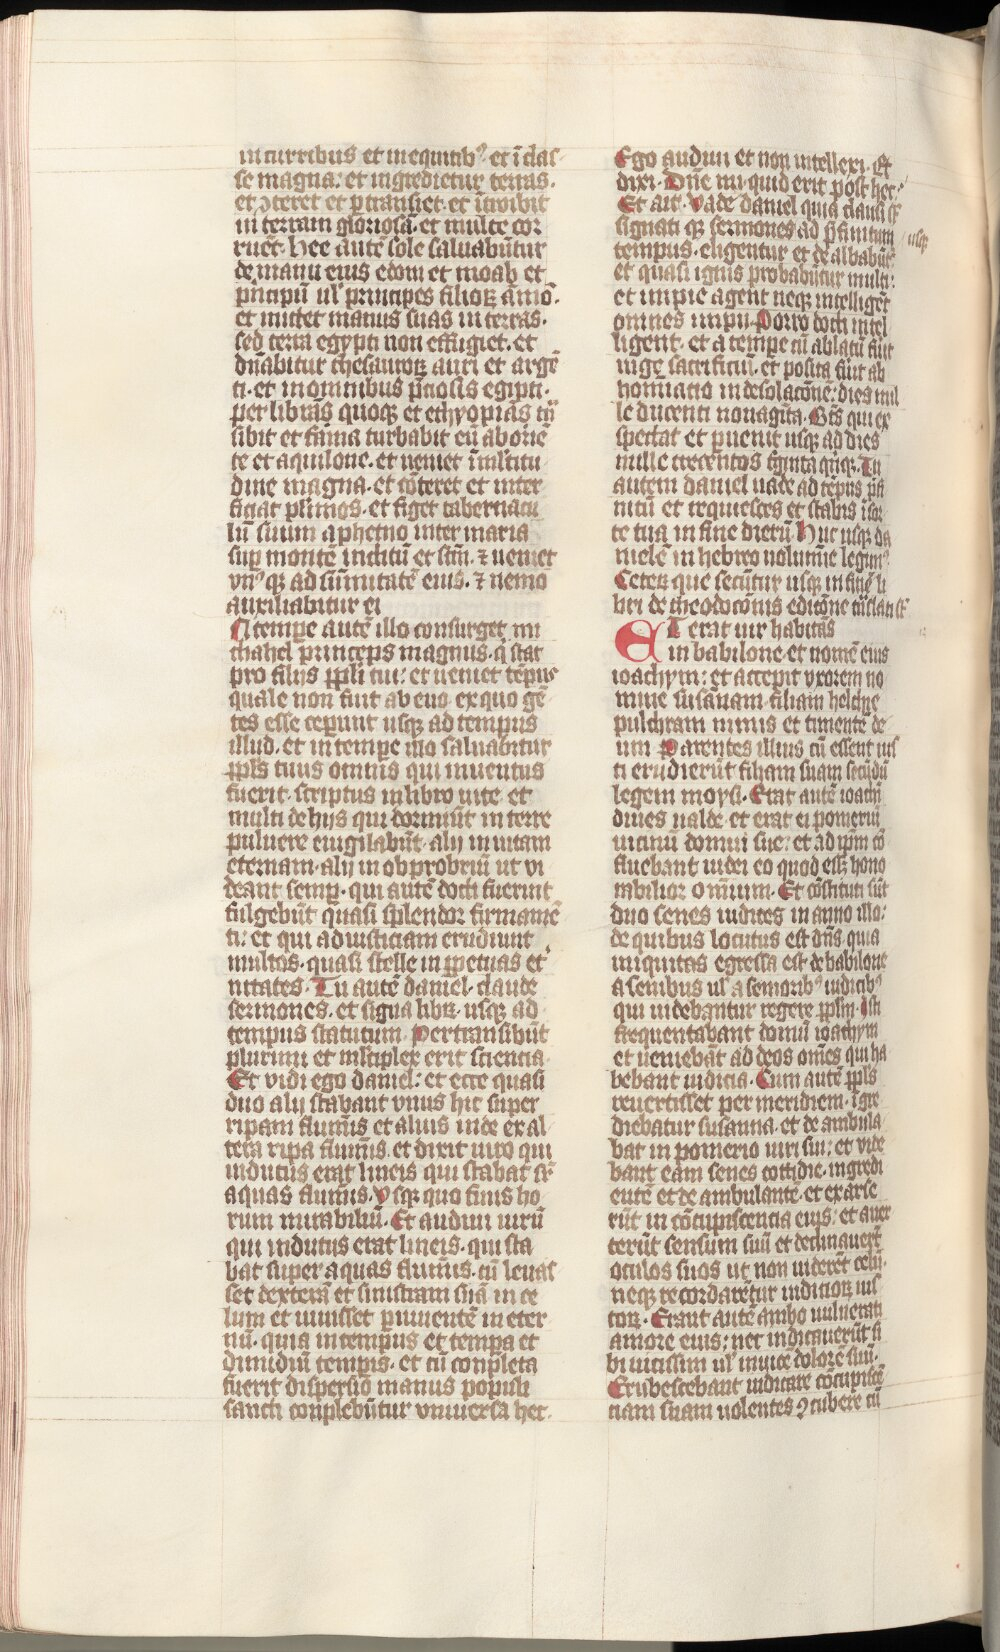 in curribus et in equitib⁹. et ī clas-
se magna: et ingredietur terras.
et ꝯteret et ꝑtransiet. et ītroibit
in terram gloriosā. et multe cor
ruēt. Hee autē sole saluabūtur
de manu eius edom et moab et
pͥncipiū ul' principes filioꝝ āmō.
et mittet manus suas in terras.
sed terra egypti non effugiet. et
dn̄abitur thesauroꝝ auri et argē
ti. et in omnibus p̄ciosis egipti.
per libiās quoqꝫ et ethyopias trā
sibit et fama turbabit eū ab oriē
te et aquilone. et ueniet ī ml'titu
dine magna. et cōteret et inter
ficiat pl'imos. et figet tabernacu
lū suum aphetno inter maria
suꝑ montē inclitū et sc̄m. ⁊ ueniet
vn̄⁹ qꝫ ad sūmitatē eius. ⁊ nemo
auxiliabitur ei
In tempe autē illo consurget mi
chahel princeps magnus. q̇ stat
pro filijs ppl'i tui: et ueniet tēpus
quale non fuit ab euo. ex quo gē
tes esse ceperunt usqꝫ ad tempus
illud. et in tempe illo saluabitur
ppl's tuus omnis qui inuentus
fuerit. scriptus in libro uite et
multi de hijs qui dormiūt in terre
puluere euigilabūt. alij in uitam
eternam. alij in obprobriū ut vi
deant semꝑ. qui autē docti fuerint
fulgebūt quasi splendor firmamē
ti: et qui ad iusticiam erudiunt
multos. quasi stelle in ꝑpetuas et
nitates. Tu autē daniel. claude
sermones. et signa libꝝ. usqꝫ ad
tempus statutum. Pertransibūt
plurimi et ml'tiplex erit sciencia.
Et vidi ego daniel: et ecce quasi
duo alij stabant vnus hic super
ripam flumīs et alius inde ex al-
tera ripa flumīs. et dixit uiro qui
indutus erat lineis qui stabat sꝑ
aquas flumīs. Vsqꝫ quo finis ho
rum mirabiliū. Et audiui uirū
qui indutus erat lineis. qui sta
bat super aquas flumīs. cū leuas
set dexterā et sinistram suā in ce
lum et iurasset ꝑ uiuentē in eter
nū. quia in tempus et tempa et
dimidiū tempis. et cū conpleta
fuerit dispersio manus populi
sancti conplebūtur vniuersa hec.
Ego audiui et non intellexi. Et
dixi. Dn̄e mi. quid erit post hec.
Et ait. Vade daniel quia clausi sͭ
signati qꝫ sermones ad p̄finitum / usqꝫ
tempus. eligentur et de albabūt
et quasi ignis probabitur multi:
et impie agent neqꝫ intelligēt
omnes impij. Porro docti intel
ligent. et a tempe cū ablatū fūit
iuge sacrificiū. et posita fūit ab
hominatio in desolacōnē: dies mil
le ducenti nonagīta. Bt̄s qui ex
spectat et ꝑuenit usqꝫ ad dies
mille trecentos tͥginta qīqꝫ. Tu
autem daniel uade ad tēpus p̄fi
nitū et requiesces et stabis ī sor
te tua in fine dierū. Huc usqꝫ da
nielē in hebreo uolumīe legim⁹.
Ceteꝝ que secūtur usqꝫ in finē li
bri de theodocōnis edicōne tn̄slati sͭ
ET erat uir habitās
in babilone et nomē eius
ioachym: et accepit vxorem no
mine susānam filiam helchie
pulchram nimis et timentē de
um. Parentes illius cū essent ius
ti erudierūt filiam suam secūdū
legem moysi. Erat autē ioachī
diues ualde. et erat ei pomeriū
uicinū domui sue: et ad ip̄m cō
fluebant iudei eo quod esset hono
rabilior omnium. Et cōstituti sūt
duo senes iudices in anno illo:
de quibus locutus est dn̄s. quia
iniquitas egressa est de babilone
a senibus ul' a semorib⁹ iudicib⁹
qui uidebantur regere ppl'm. Isti
frequentabant domū ioachym
et ueniebāt ad deos om̄es qui ha
bebant iudicia. Cum autē ppl's
reuertisset per meridiem. īgre
diebatur susanna. et de ambula
bat in pomerio uiri sui: et vide
bant eam senes cottidie. ingredi
entē et de ambulantē. et exarse
rūt in cōcupiscencia eius: et auer
terūt sensum suū et declinauerūt
oculos suos ut non uiderēt celū.
neqꝫ recordarētur iudicioꝝ ius
toꝝ. Erant autē ambo uulnerati
amore eius: nec indicauerūt si
bi uicissim ul' inuicē dolorē suū.
Erubescebant iudicare cōcupiscē
ciam suam uolentes ꝯcubere cū